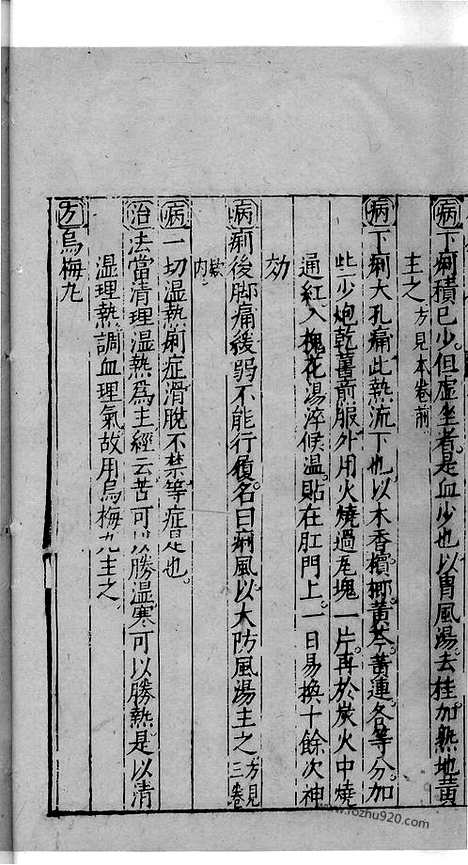 病下痢積已少但虛坐者是血少也以胃風湯去桂加熟地黃
主之方見本卷前
病下痢大孔痛此熱流下也以木香檳榔黃芩黃連各等分加
些少炮乾薑煎服外用火燒過尾塊一片再於炭火中燒
通紅入槐花湯淬候溫貼在肛門上一日易換十餘次神
効
病痢後脚痛緩弱不能行履名曰痢風以大防風湯主之方見三卷
內
病一切湿熱痢症滑脫不禁等症是也
治法當清理湿熱爲主經云苦可以勝湿寒可以勝熱是以清
湿理熱調血理氣故用烏梅丸主之
方烏梅丸
www.fozhu920.com